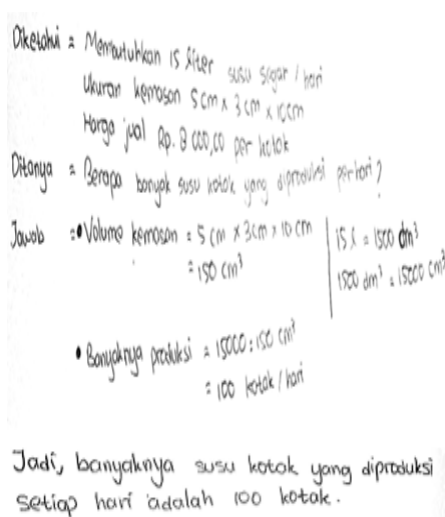 Diketahui = Membutuhkan 15 liter susu segar / hari
Ukuran kemasan 5cm x 3cm x 10cm
Harga jual Rp. 8 000,00 per kotak
Ditanya = Berapa banyak susu kotak yang diproduksi perhari?
Jawab = • Volume kemasan = 5 cm x 3cm x 10 cm
= 150 cm³
15 l = 1500 dm³
1500 dm³ = 15000 cm³
• Banyaknya produksi = 15000 : 150 cm³
= 100 kotak / hari
Jadi, banyaknya susu kotak yang diproduksi
setiap hari adalah 100 kotak.